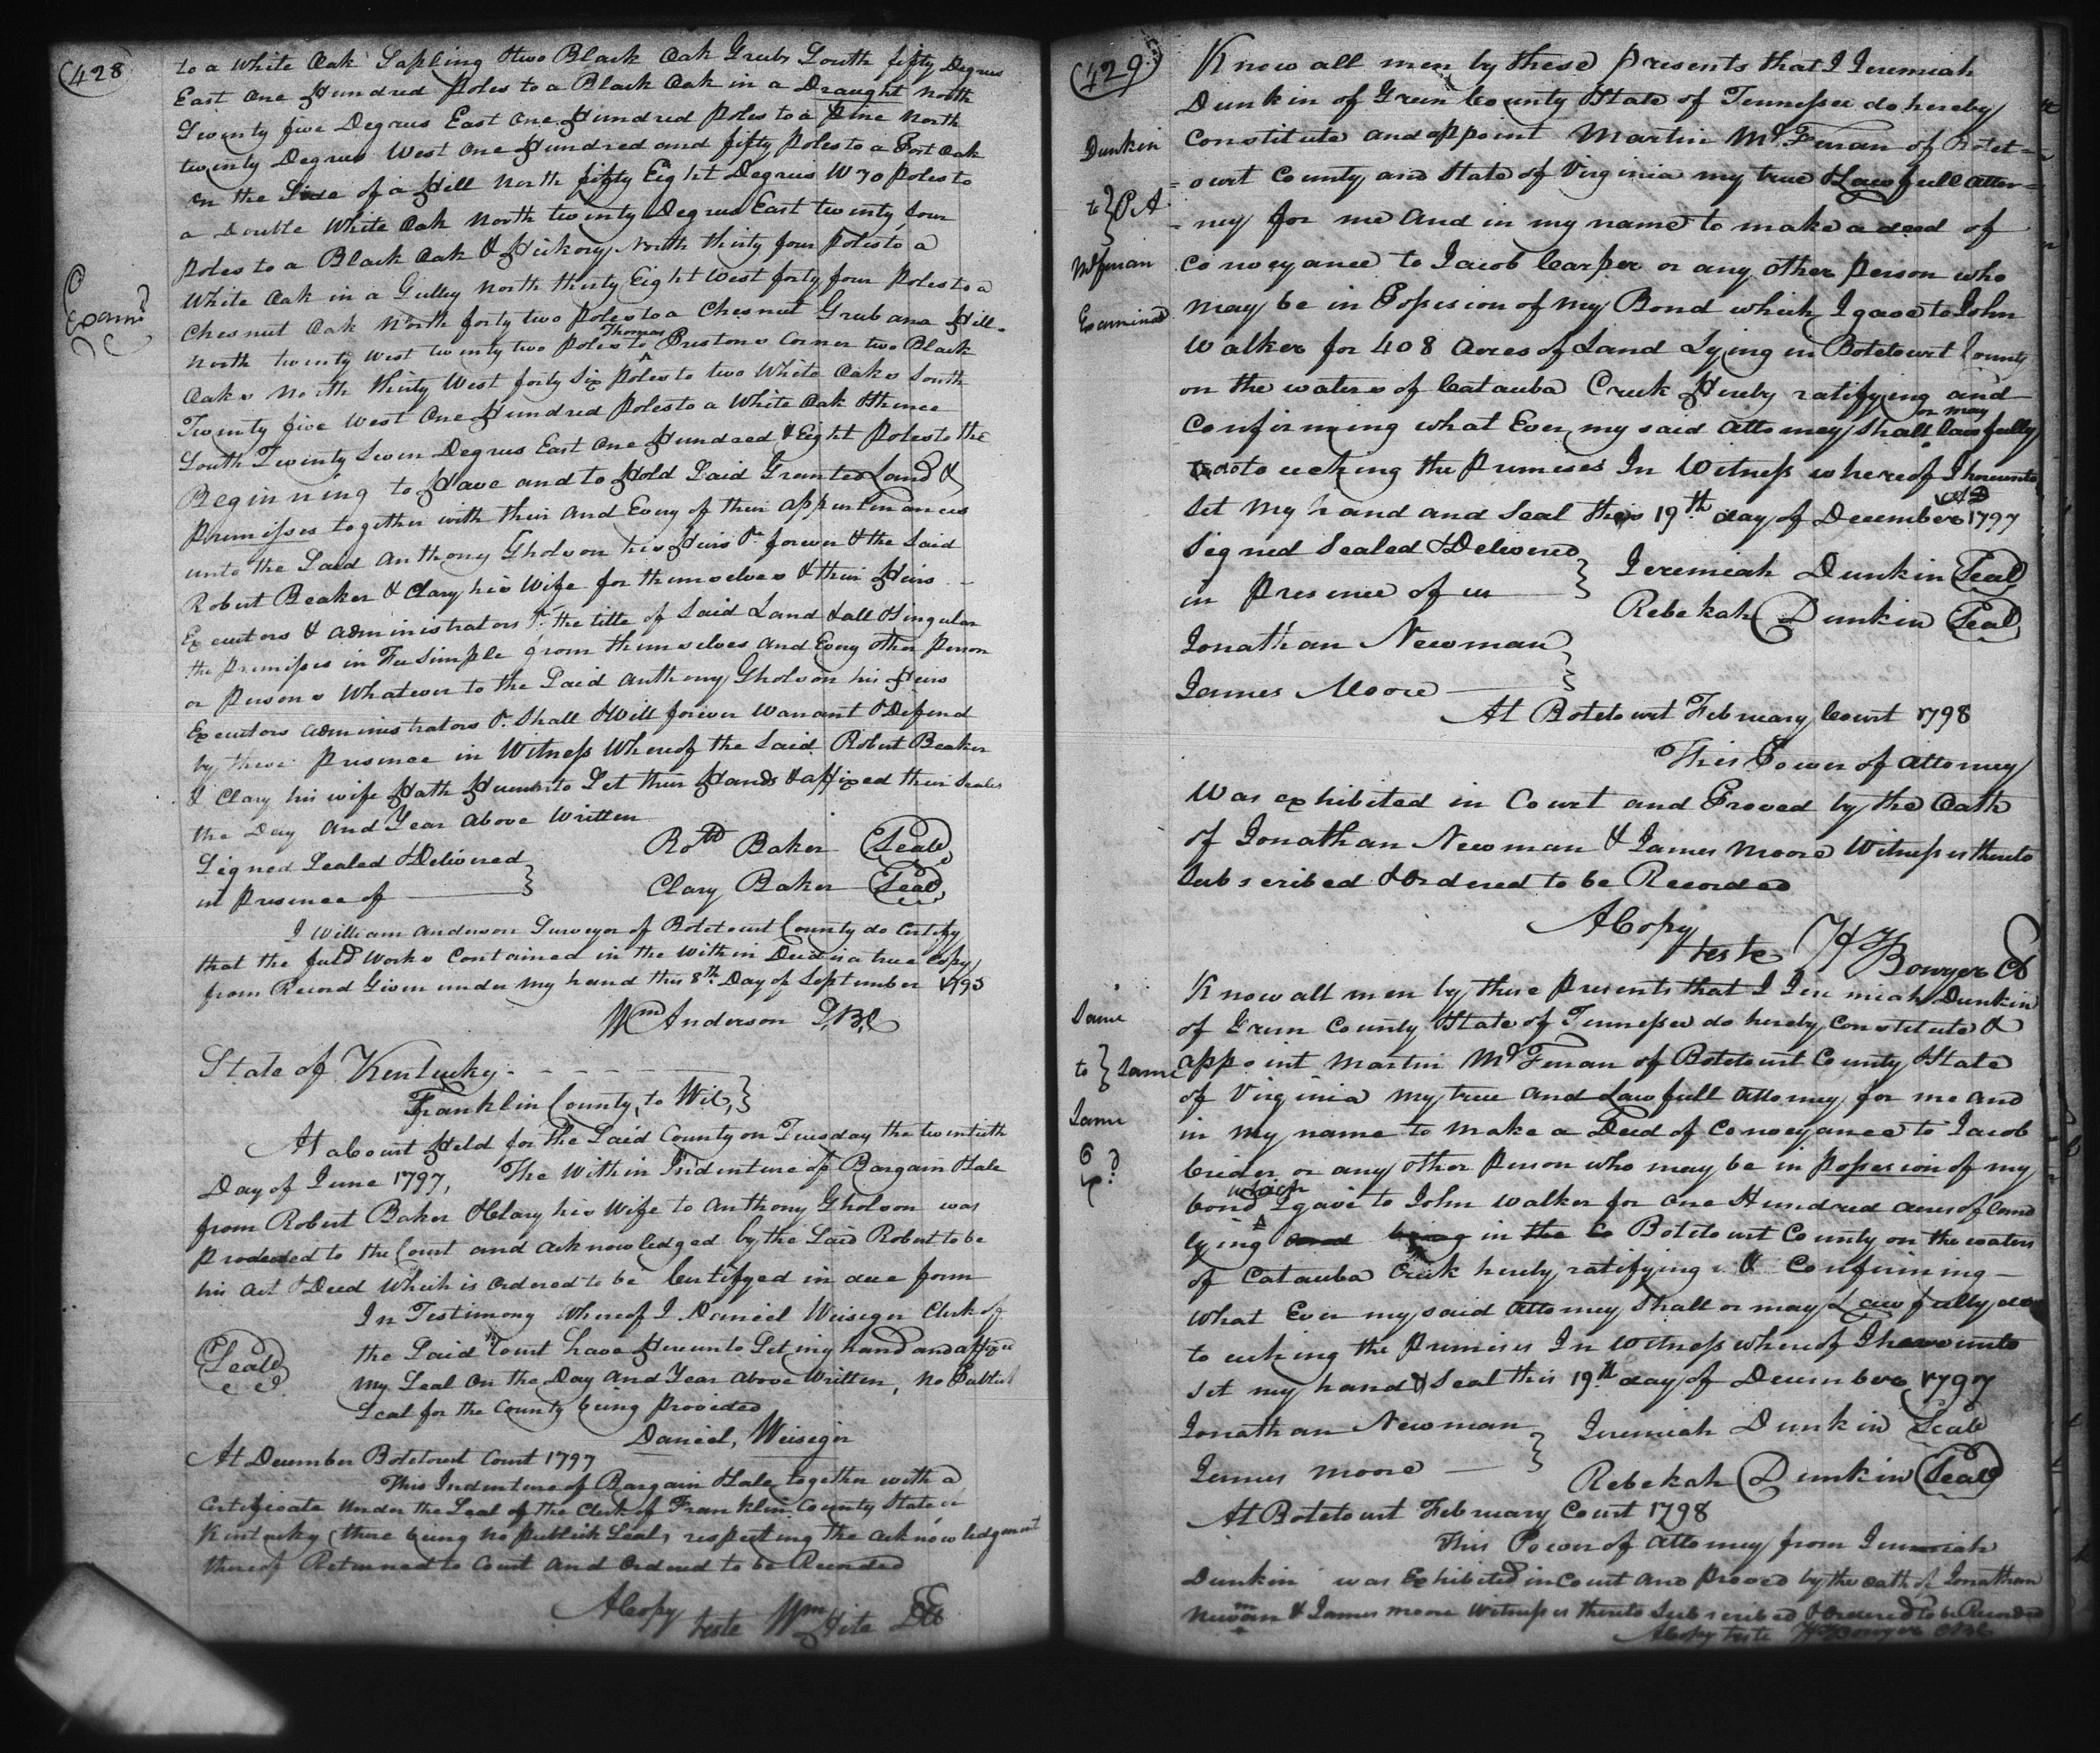 428
to a White Oak Sapling & two Black Oak Grubs South fifty Degrees
East One Hundred Poles to a Black Oak in a Draught North
Twenty five Degrees East One Hundred Poles to a Pine North
twenty Degrees West One Hundred and fifty Poles to a Post Oak
on the Side of a Hill North fifty Eight Degrees W 70 Poles to
a Double White Oak North twenty Degrees East twenty four
Poles to a Black Oak & Hickory North thirty four Poles to a
White Oak in a Gulley North thirty Eight West forty four Poles to a
Chesnut Oak North forty two Poles to a Chesnut Grub and Hill
North twenty West twenty two Poles to Thomas Prestons Corner two Black
Oaks North thirty West forty Six Poles to two White Oaks South
Twenty five West One Hundred Poles to a White Oak thence
South Twenty Seven Degrees East One Hundred & Eight Poles to the
Beginning to Have and to Hold Said Granted Land &
Premisses together with their and Every of their appurtenances
unto the Said Anthony Gholson his Heirs &c forever & the Said
Robert Beaker & Clary his Wife for themselves & their Heirs
Executors & administrators &c the title of Said Land & all & Singular
the Premisses in Fee Simple from themselves and Every other Person
or Persons Whatever to the Said Anthony Gholson his Heirs
Executors administrators &c Shall & Will forever Warrant & Defend
by these Presence in Witness Whereof the Said Robert Beaker
& Clary his wife Hath Hereunto Set their Hands & affixed their Seales
the Day and Year above Written
Signed Sealed & Delivered }
in Presence of
Robt Baker (Seal)
Clary Baker (Seal)
Examd
I William Anderson Surveyor of Botetourt County do Certify
that the field Works Contained in the Within Deed is a true Copy
from Record Given under my hand this 8th Day of September 1795
Wm Anderson S,B,C
State of Kentucky
Franklin County, to Wit, }
At a Court Held for the Said County on Tuesday the twentieth
Day of June 1797, The Within Indenture of Bargain & Sale
from Robert Baker & Clary his Wife to Anthony Gholson was
Produced to the Court and acknowledged by the Said Robert to be
his act & Deed Which is Ordered to be Certifyed in due form
In Testimony Whereof I Daniel Weisiger Clerk of
(Seal)
the Said Court have Hereunto Set my hand and affixed
My Seal On the Day and Year above Written, No Publick
Seal for the County being Provided
Daniel, Weisiger
At December Botetourt Court 1797
This Indenture of Bargain & Sale together with a
Certificate Under the Seal of the Clerk of Franklin County State of
Kentucky (there being no publick Seal) respecting the acknowledgment
thereof Returned to Court and Ordered to be Recorded
A Copy
teste Wm Hite DC
429
Know all men by these Presents that I Jeremiah
Dunkin of Green County & State of Tennessee do hereby
Constitute and appoint Martin McFerran of Botet=
=ourt County and State of Virginia my true & Lawfull Attor=
=ney for me and in my name to make a deed of
Conveyance to Jacob Carper or any other Person who
May be in Possesion of my Bond which I gave to John
Walker for 408 Acres of Land Lying in Botetourt County
on the waters of Catauba Creek Hereby ratifying and
Confirming what Ever my said Attorney shall or may lawfully
do toutching the Premises In Witness whereof I hereunto
Set My hand and Seal this 19th day of December AD 1797
Dunkin
to } P.A
McFerran
Examined
Signed Sealed & Delivered }
in Presence of us
Jeremiah Dunkin (Seal)
Rebekah Dunkin (Seal)
Jonathan Newman }
James Moore
At Botetourt February Court 1798
This Power of Attorney
Was exhibited in Court and Proved by the Oath
of Jonathan Newman & James Moore Witnesses thereto
Subscribed & Ordered to be Recorded
A Copy
teste H Bowyer C
Know all men by these Presents that I Jeremiah Dunkin
of Green County & State of Tennessee do hereby Constitute &
appoint Martin McFerran of Botetourt County & State
of Virginia my true and Lawfull Attorney for me and
in my name to Make a Deed of Conveyance to Jacob
Crider or any other Person who may be in Possession of my
bond which I gave to John Walker for One Hundred acres of Land
lying and being in the Co Botetourt County on the waters
of Catauba Creek hereby ratifying & Confirming
What Ever my said Attorney Shall or may Lawfully do
toutching the Premises In Witness whereof I have unto
Set my hand & Seal this 19th day of December 1797
Same
to } Same
Same
Exd
Jonathan Newman }
James Moore
Jeremiah Dunkin Seal
Rebekah Dunkin (Seal)
At Botetourt February Court 1798
This Power of Attorney from Jeremiah
Dunkin was Exhibited in Court and Proved by the oath of Jonathan
Newman & James Moore Witnesses thereto Subscribed & Ordered to be Recorded
A Copy teste H Bowyer CBC